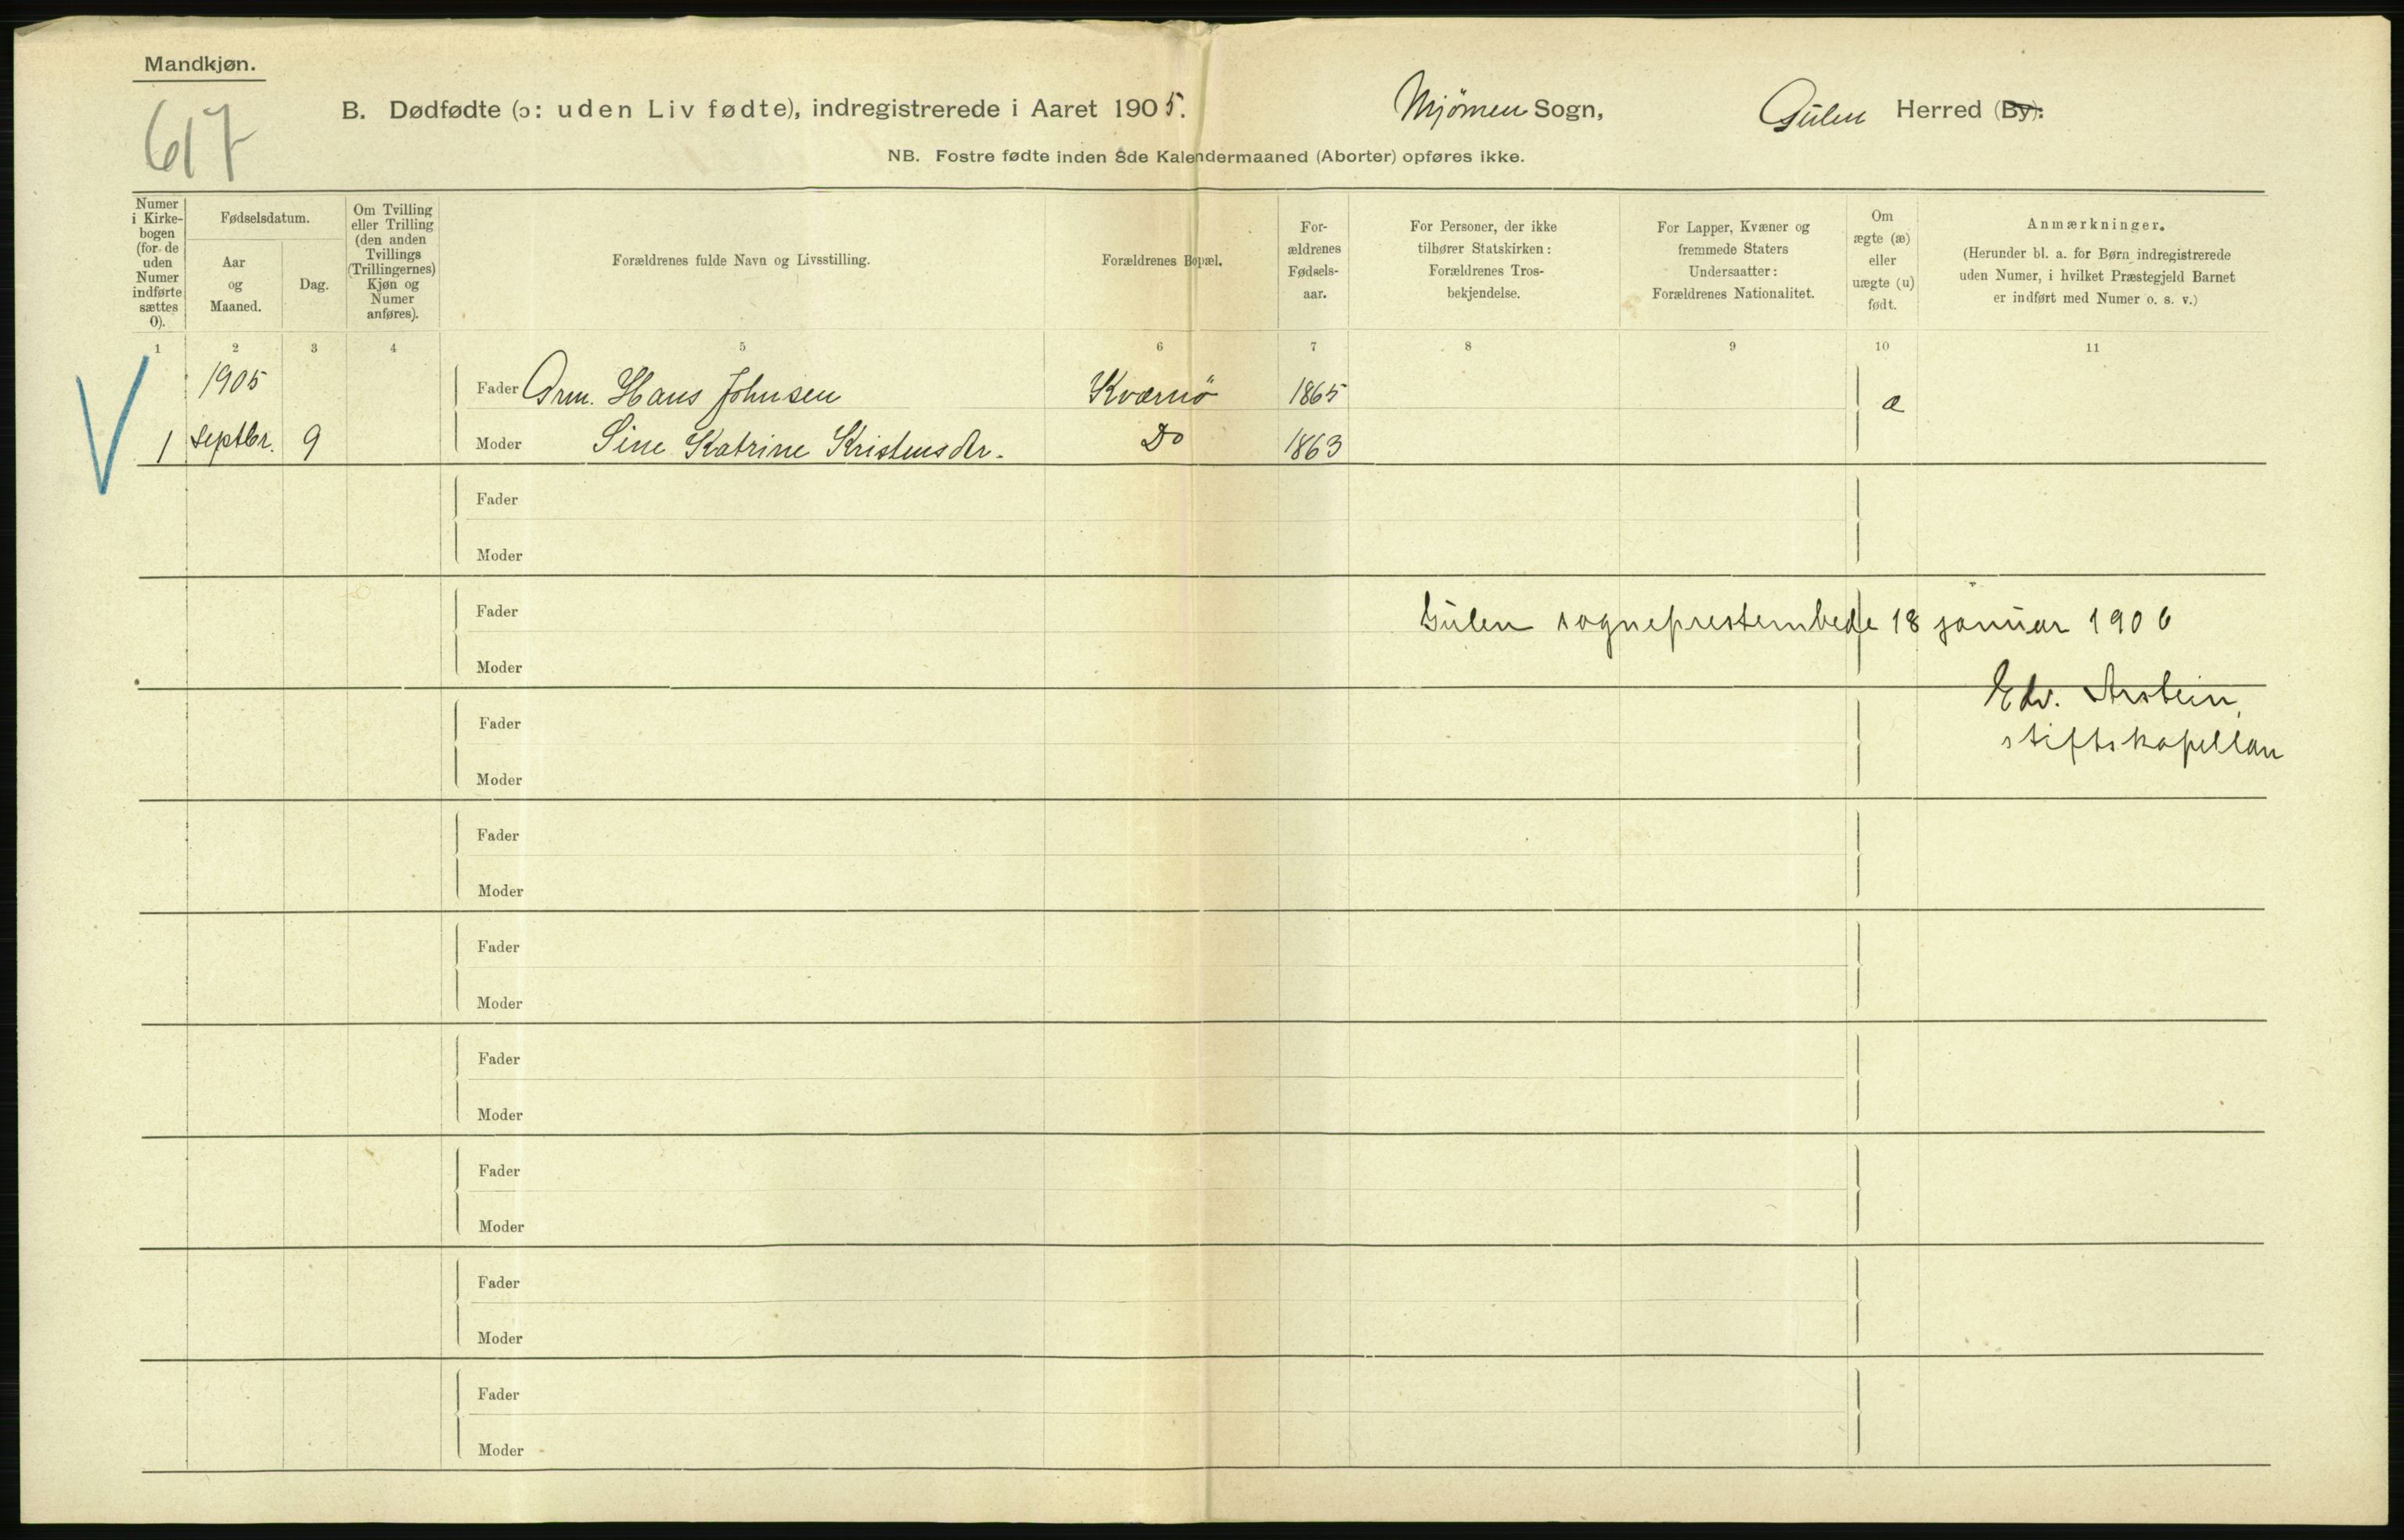 Mandkjøn.
617
B. Dødfødte (ɔ: uden Liv fødte), indregistrerede i Aaret 1905. Mjömen Sogn, Gulen Herred (By):
NB. Fostre fødte inden 8de Kalendermaaned (Aborter) opføres ikke.
Numer i Kirke-bogen (for de uden Numer indførte sættes 0).
Fødselsdatum.
Aar og Maaned.
Dag.
Om Tvilling eller Trilling (den anden Tvillings (Trillingernes) Kjøn og Numer anføres).
Forældrenes fulde Navn og Livsstilling.
Forældrenes Bopæl.
For-ældrenes Fødsels-aar.
For Personer, der ikke tilhører Statskirken: Forældrenes Tros-bekjendelse.
For Lapper, Kvæner og fremmede Staters Undersaatter: Forældrenes Nationalitet.
Om ægte (æ) eller uægte (u) født.
Anmærkninger.
(Herunder bl. a. for Børn indregistrerede uden Numer, i hvilket Præstegjeld Barnet er indført med Numer o. s. v.)
1 2 3 4 5 6 7 8 9 10 11
1905 Fader Grm. Hans Johnsen Kværnö 1865 æ
1 Septbr. 9 Moder Sine Katrine Kristensdtr. Do 1863
Fader
Moder
Fader
Gulen sogneprestembede 18 januar 1906
Moder
Edv. Arstein,
Fader
stiftskapellan
Moder
Fader
Moder
Fader
Moder
Fader
Moder
Fader
Moder
Fader
Moder
Fader
Moder